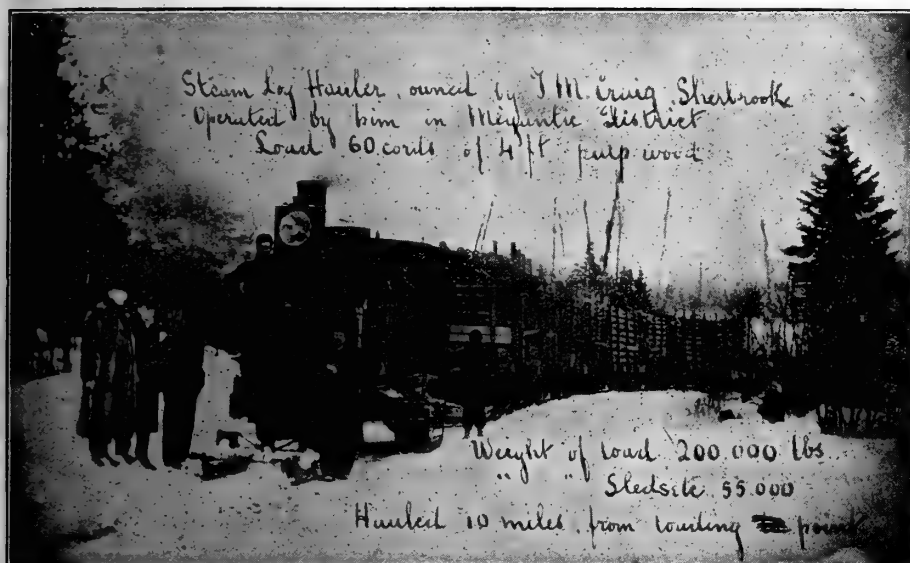 Steam Log Hauler, owned by T. M. Craig Sherbrooke
Operated by him in Megantic District
Load 60 cords of 4 ft pulp wood
Weight of load 200.000 lbs
" " Sledsete 55.000
Hauled 10 miles from loading point